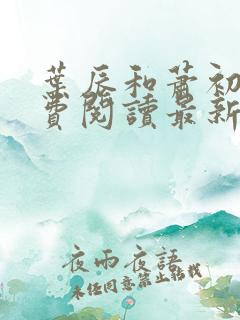 葉辰和蕭初
費閱讀最新
夜雨夜語
未经同意禁止转载